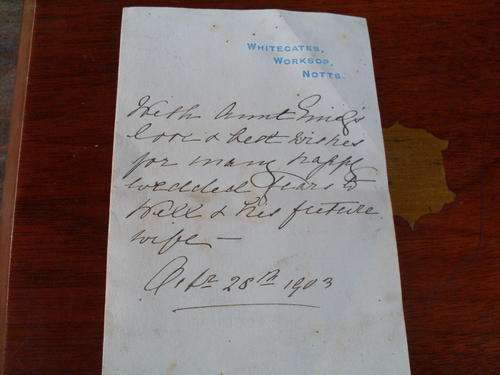 WHITEGATES,
WORKSOP,
NOTTS.
With Aunt
love & best wishes
for many happy
wedded years to
Will & his future
wife —
28th 1903